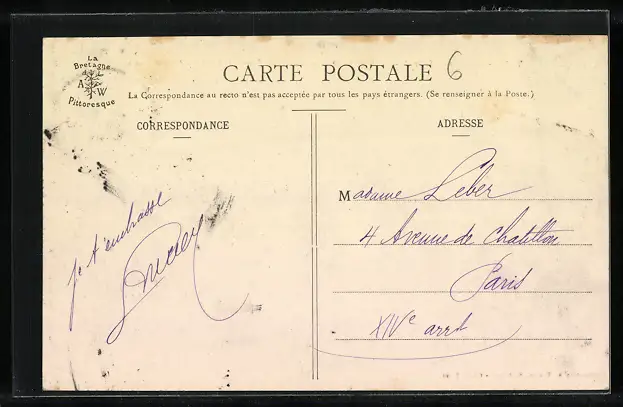 La
Bretagne
A W
Pittoresque
CARTE POSTALE 6
La Correspondance au recto n'est pas acceptée par tous les pays étrangers. (Se renseigner à la Poste.)
CORRESPONDANCE
ADRESSE
je t'embrasse
Madame Leber
4 Avenue de Chatillon
Paris
XIVe arrt